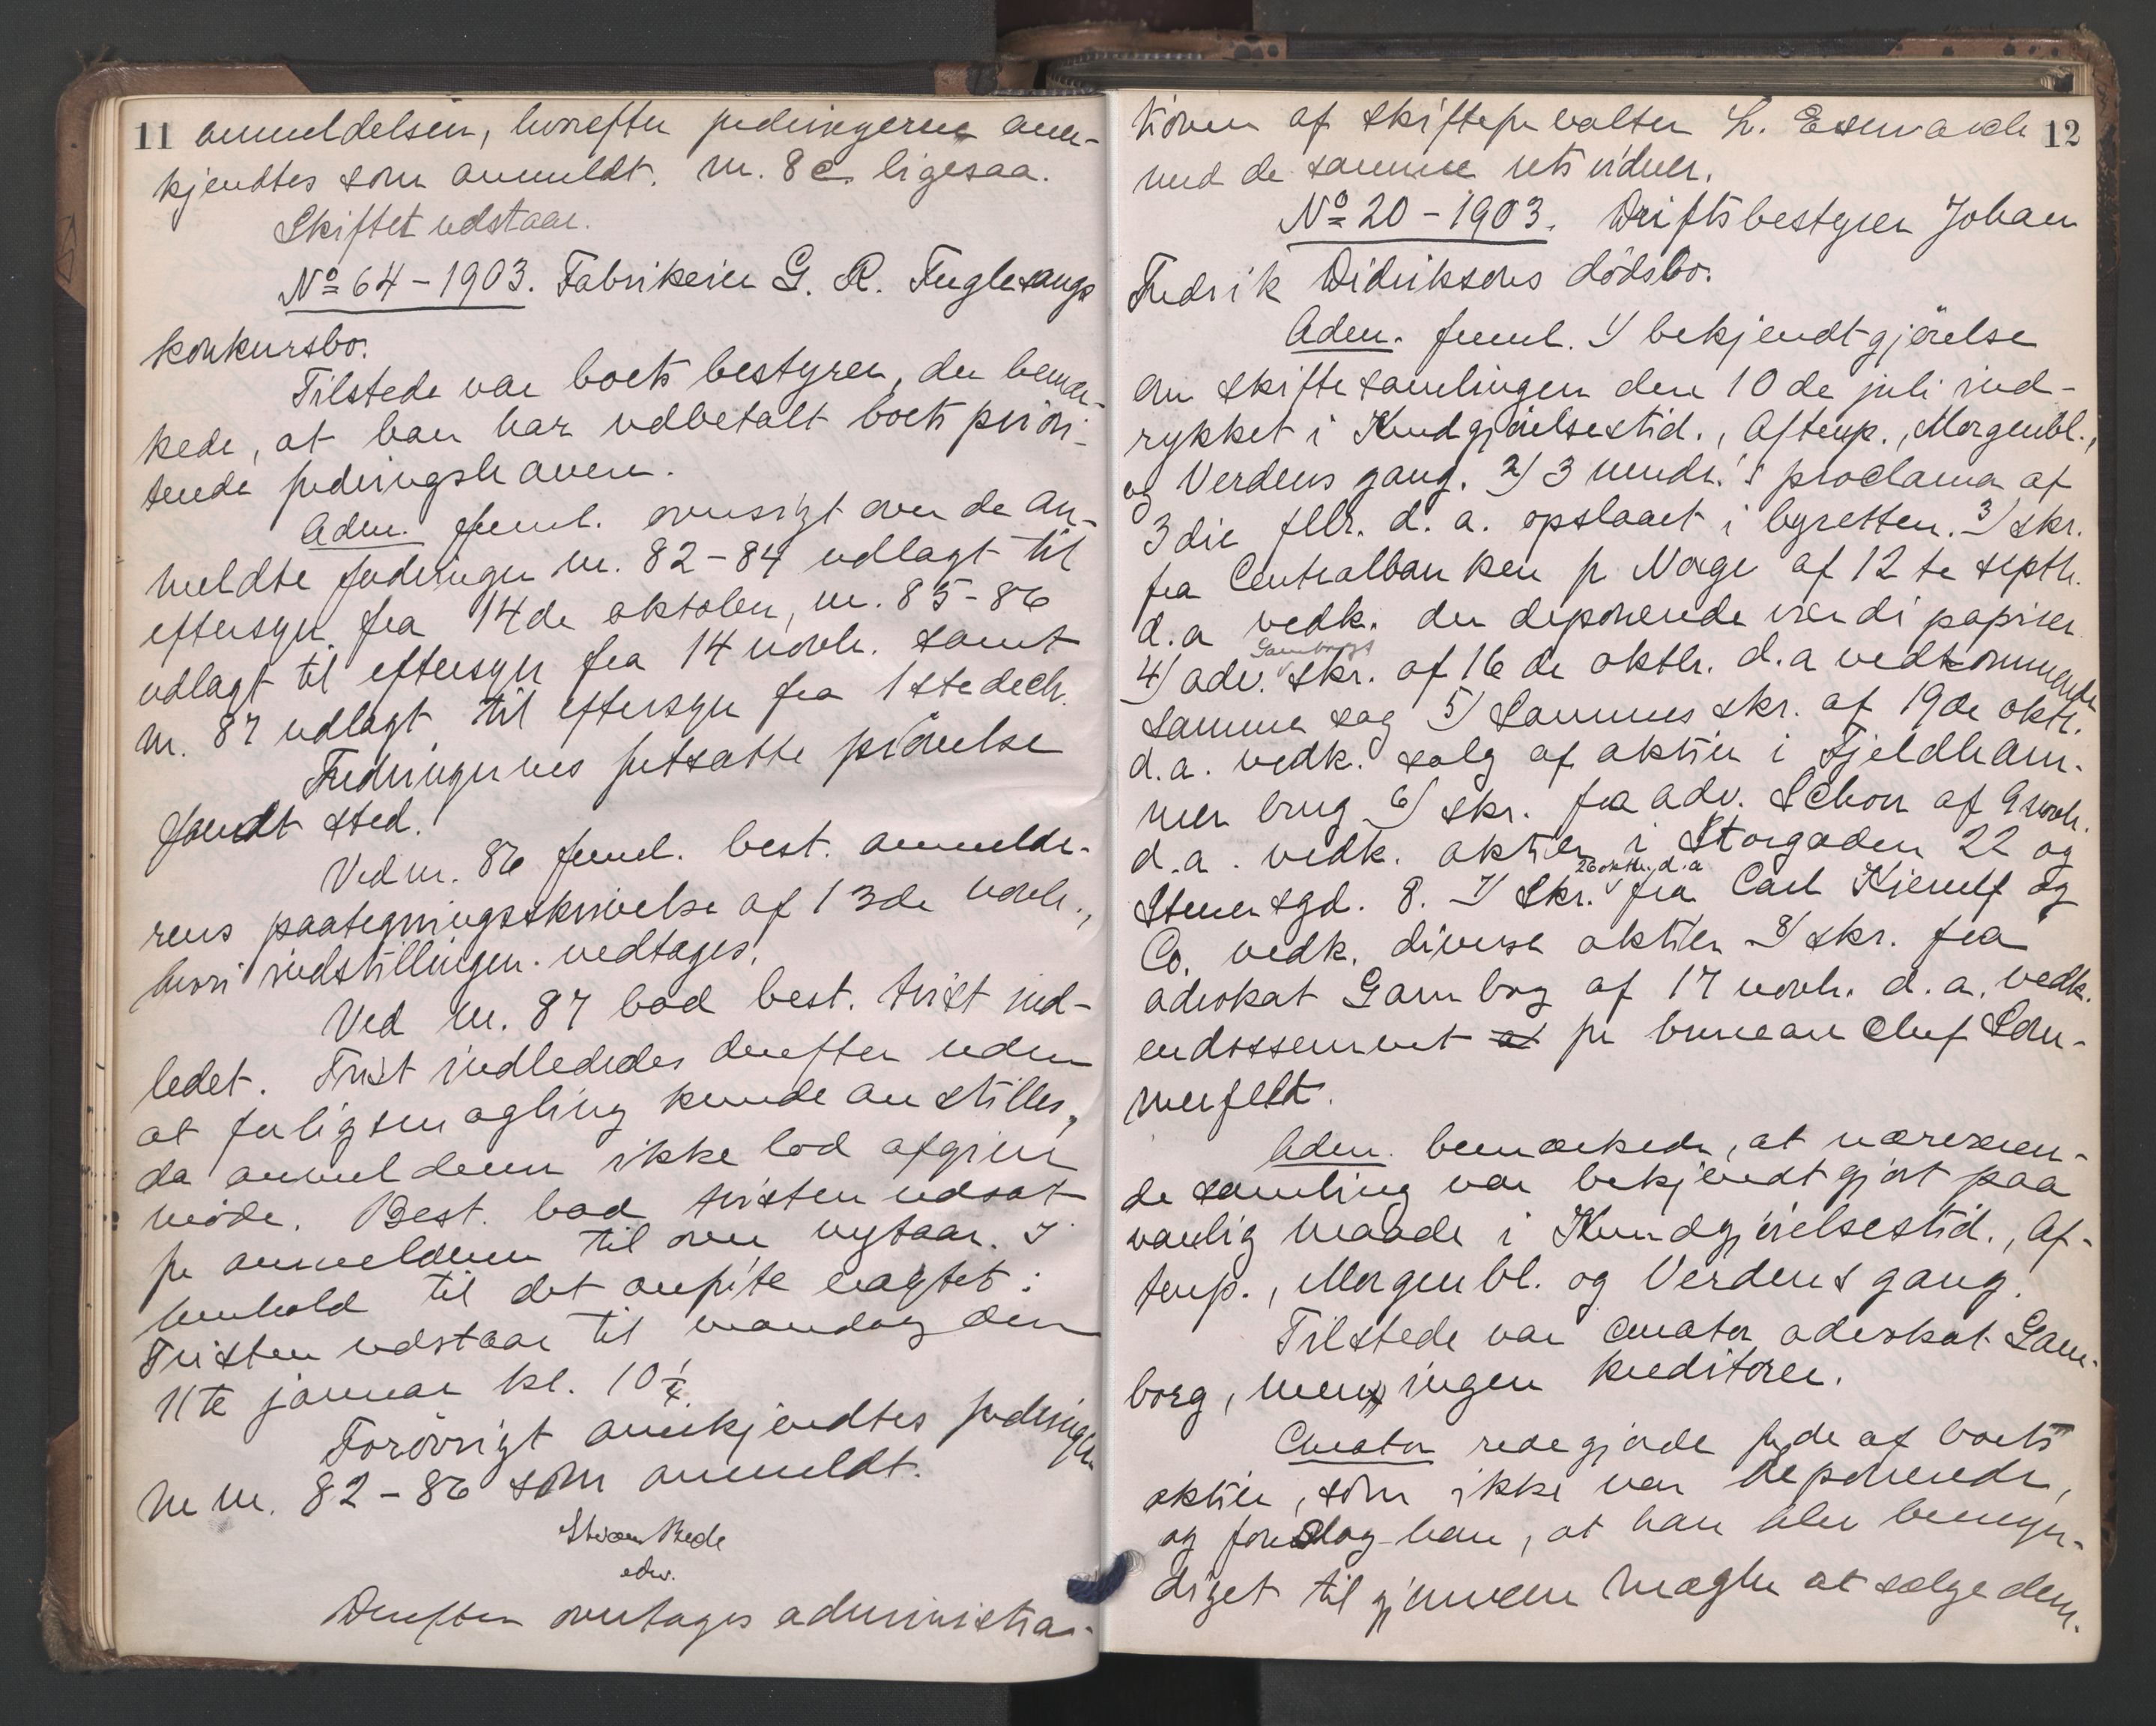 11 anmeldelsen, hvorefter fordringerne aner-
kjendtes som anmeldt. nr. 8 c. ligesaa.
Skiftet udstaar.
No 64 - 1903. Fabrikeier G. R. Fuglesangs
konkursbo.
Tilstede var boets bestyrer, der bemær-
kede, at han har udbetalt boets priori-
terede fordringshavere.
Adm. freml. oversigt over de an-
meldte fordringer nr. 82-84 udlagt til
eftersyn fra 14de oktober, nr. 85-86
udlagt til eftersyn fra 14 novbr. samt
nr. 87 udlagt til eftersyn fra 1ste decbr.
Fordringernes fortsatte prövelse
fandt sted.
Ved nr. 86 freml. best. anmelde-
rens paategningsskrivelse af 13de novbr.,
hvori indstillingen vedtages.
Ved nr. 87 bad best. tvist ind-
ledet. Tvist indlededes derefter uden
at forligsmægling kunde anstilles,
da anmelderen ikke lod afgive
möde. Best. bad tvisten udsat
for anmelderen til over nytaar. I
henhold til det anförte eragtet:
Tvisten udstaar til mandag den
11te januar kl. 10 1/4.
Forövrigt anerkjendtes fordringer
ne nr. 82-86 som anmeldt.
Derefter overtages administra-
12
tionen af skifteforvalter L. Esmarch
med de samme retsvidner.
No 20 - 1903. Driftsbestyrer Johan
Fredrik Didriksons dödsbo.
Adm. freml. 1) bekjendtgjörelse
om skiftesamlingen den 10de juli ind-
rykket i Kundgjörelsestid., Aftenp., Morgenbl.,
og Verdens gang. 2) 3 mndr.'s proclama af
3die febr. d. a. opslaaet i byretten. 3) skr.
fra Centralbanken for Norge af 12te septbr.
d. a vedk. der deponerede værdipapirer
4) adv. Gamborgs skr. af 16de oktbr. d. a vedkommende
samme sag 5) Sammes skr. af 19de oktbr.
d. a. vedk. salg af aktier i Fjeldham-
mer brug 6) skr. fra adv. Schou af 9 novbr.
d. a. vedk. aktier i Storgaden 22 og
Stenersgd. 8. 7) Skr. 26 oktbr. d. a fra Carl Kjerulf og
Co. vedk. diverse aktier 8) skr. fra
advokat Gamborg af 17 novbr. d. a. vedk.
endossement af for bureauchef Som-
merfeldt.
Adm. bemærkede, at nærværen-
de samling var bekjendtgjort paa
vanlig maade i Kundgjörelsestid., Af-
tenp., Morgenbl. og Verdens gang.
Tilstede var curator advokat Gam-
borg, men ingen kreditorer.
Curator redegjorde for de af boets
aktier, som ikke var deponerede,
og foreslog han, at han blev bemyn-
diget til gjennem mægler at sælge dem.